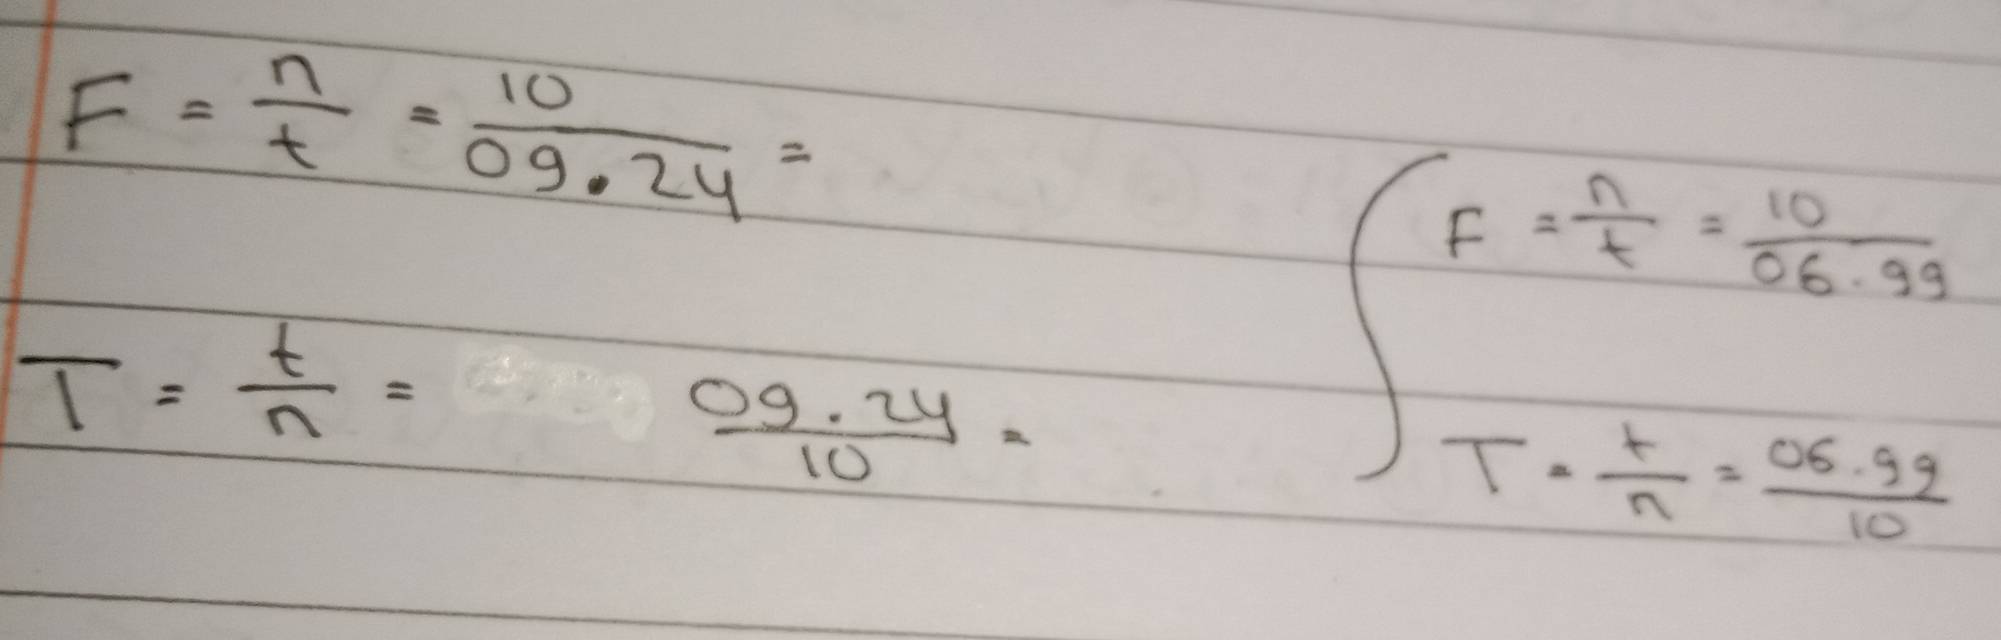 F = n/t = 10/09.24 =
T = t/n = 09.24/10 =
F = n/t = 10/06.99
T = t/n = 06.99/10